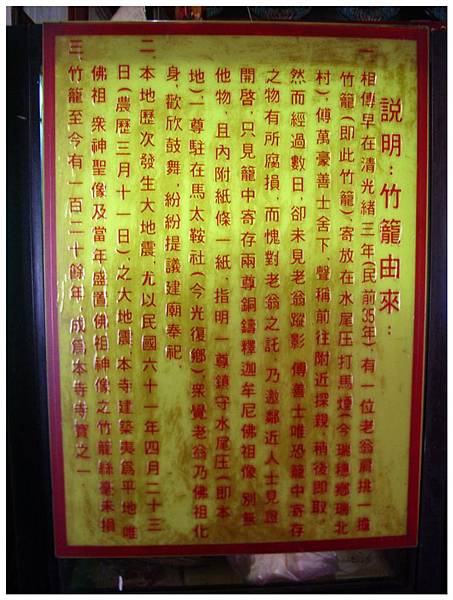 說明：竹籠由來：
一 相傳早在清光緒三年(民前35年)，有一位老翁肩挑一擔
竹籠(即此竹籠)，寄放在水尾庄打馬煙(今瑞穗鄉瑞北
村)，傅萬豪善士舍下，聲稱前往附近探親，稍後即取
然而經過數日，卻未見老翁蹤影，傅善士唯恐籠中寄存
之物有所腐損，而愧對老翁之託，乃邀鄰近人士見證
開啓，只見籠中寄存兩尊銅鑄釋迦牟尼佛祖像，別無
他物，且內附紙條一紙，指明一尊鎮守水尾庄(即本
地)一尊駐在馬太鞍社(今光復鄉)眾覺老翁乃佛祖化
身，歡欣鼓舞，紛紛提議建廟奉祀.
二 本地歷次發生大地震，尤以民國六十一年四月二十三
日(農歷三月十一日)，之大地震，本寺建築夷為平地，唯
佛祖，眾神聖像及當年盛置佛祖神像之竹籠絲毫未損
三 竹籠至今有一百二十餘年，成為本寺寺寶之一